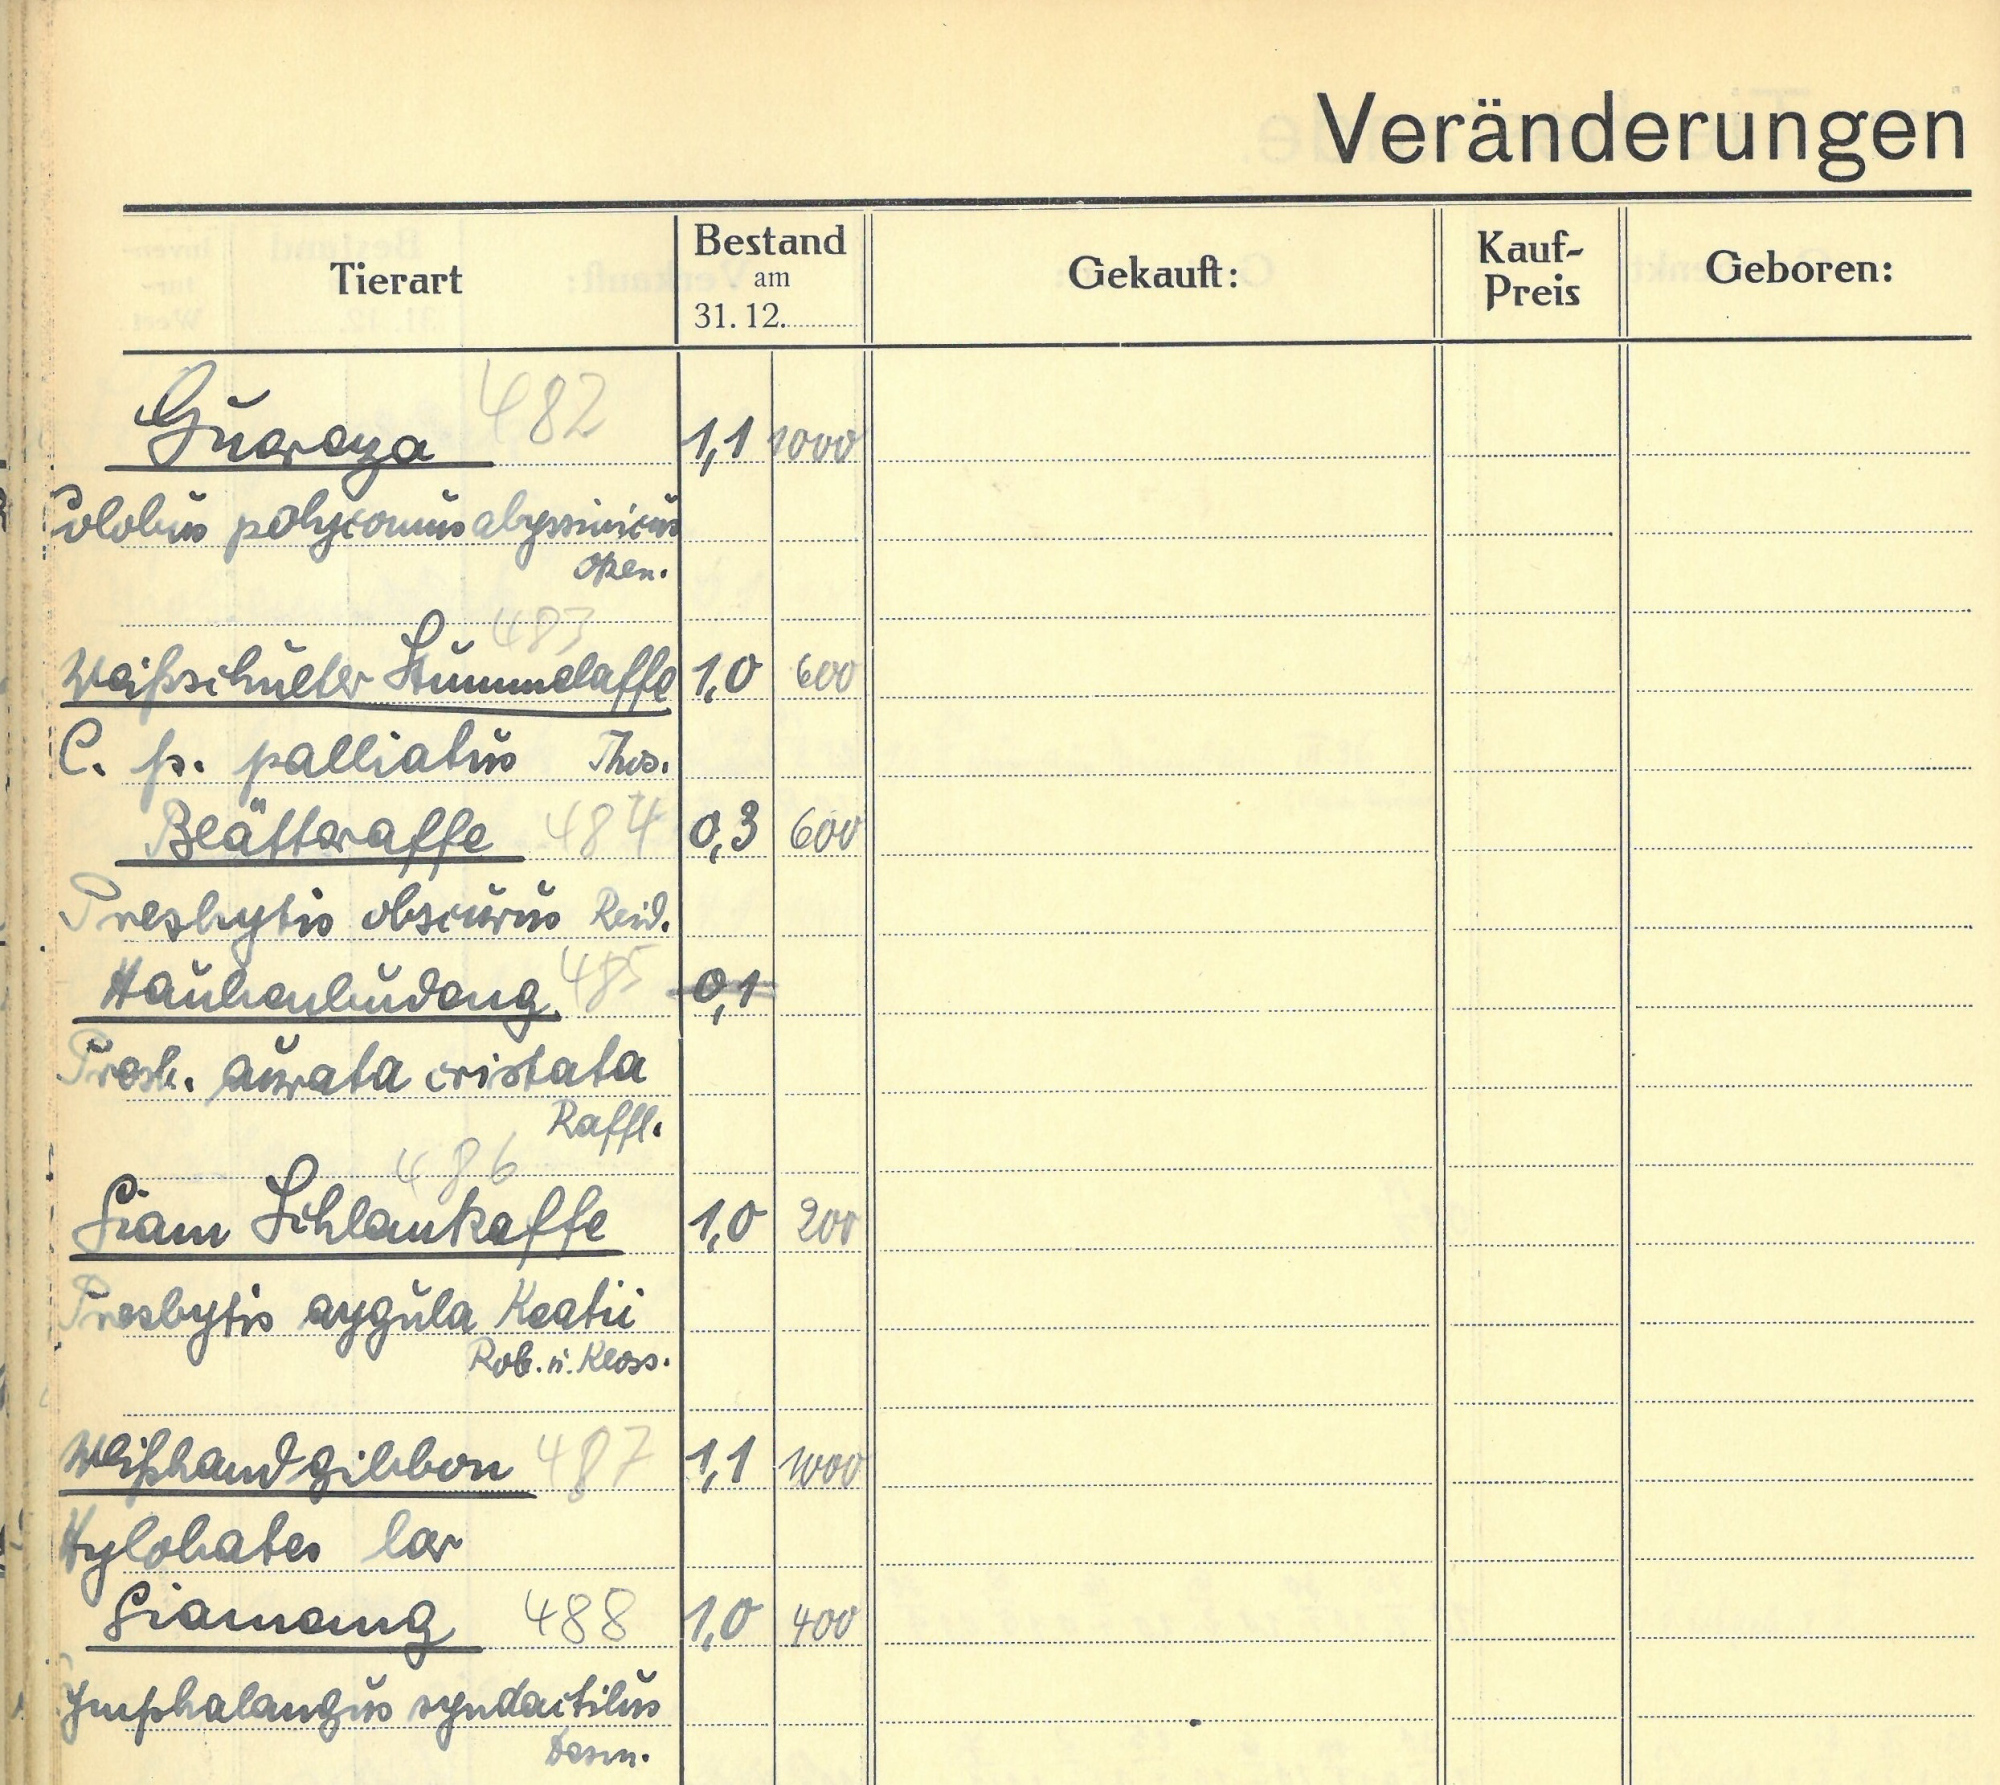 Veränderungen
Tierart
Bestand
am
31. 12.
Gekauft:
Kauf-
Preis
Geboren:
Guareza 482 1,1 1000
Colobus polycomus abyssinicus
Oken.
483
Weißschulter Stummelaffe 1,0 600
C. p. palliatus Thos.
Blätteraffe 484 0,3 600
Presbytis obscurus Reid.
Haubenbudeng. 485 0,1
Presb. aurata cristata
Raffl.
486
Siam Schlankaffe 1,0 200
Presbytis aygula Keatii
Rob. u. Kloss.
Weißhandgibbon 487 1,1 1000
Hylobates lar
Siamang 488 1,0 400
Symphalangus syndactilus
Desm.